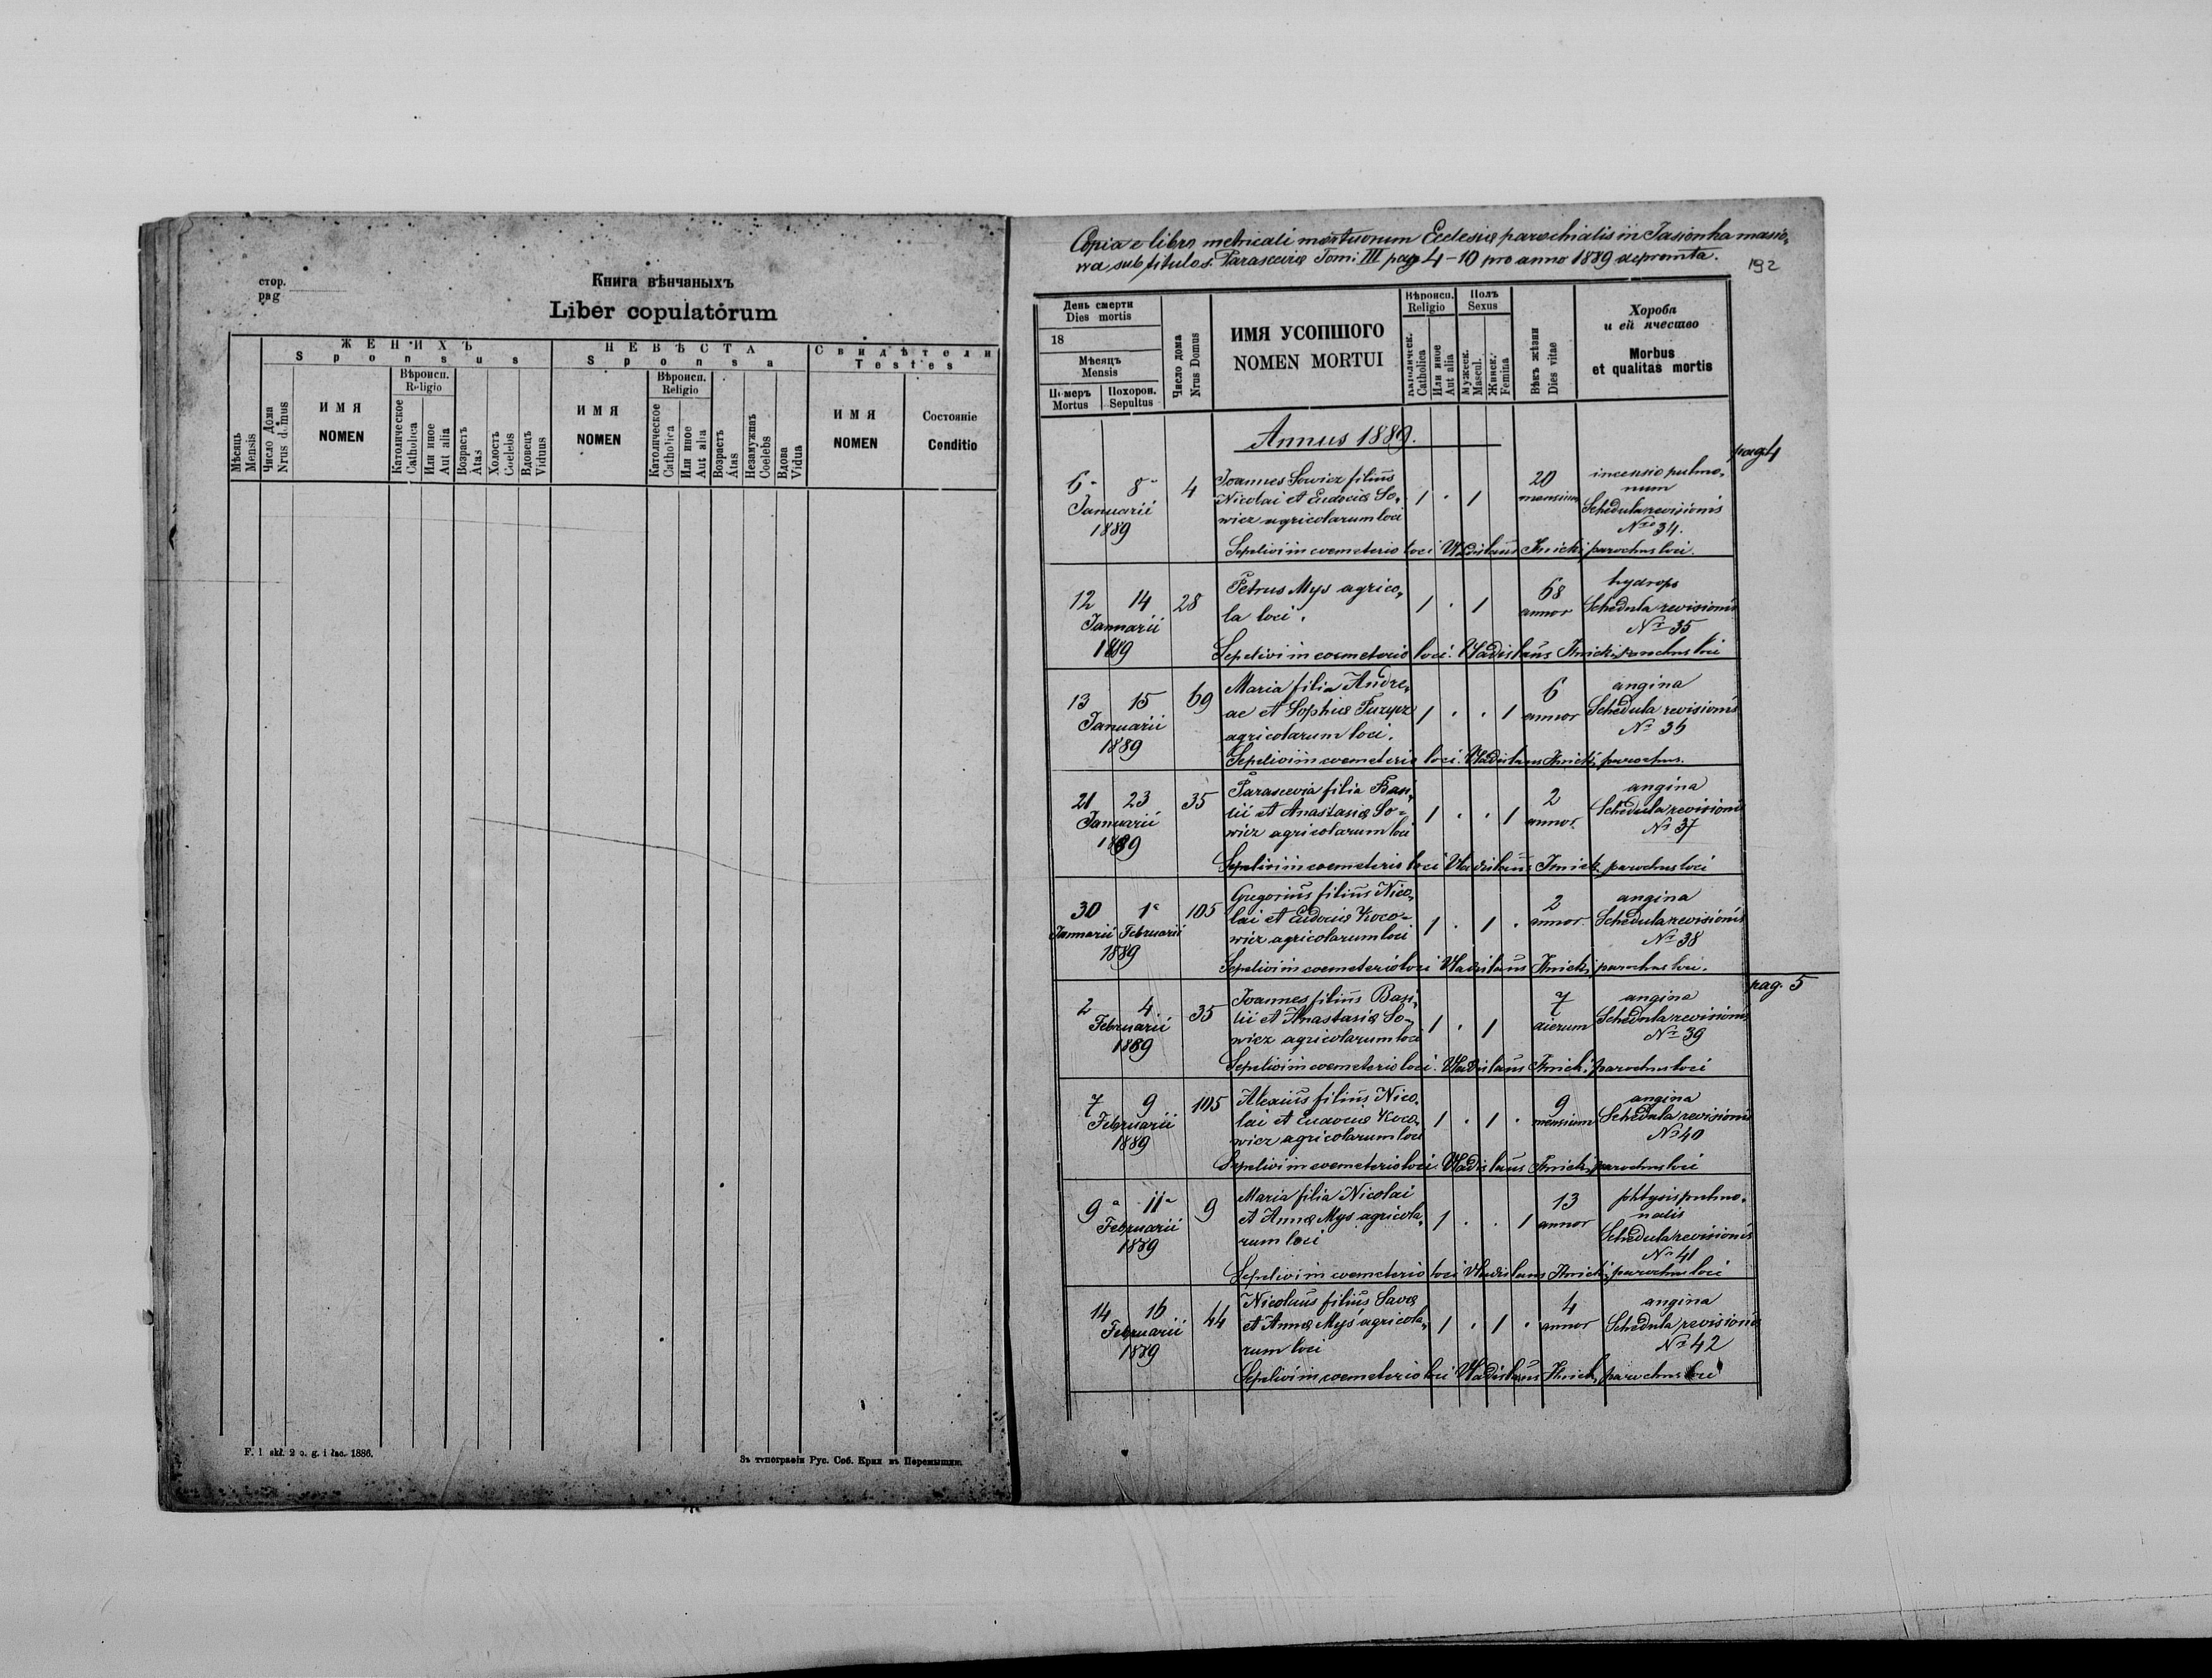 стор.
pag
Книга вѣнчаныхъ
Liber copulatórum
Мѣсяць
Mensis
Число Дома
Nrus domus
ЖЕНИХЪ
Sponsus
ИМЯ
NOMEN
Вѣроисп.
Religio
Католическое
Catholica
Или иное
Aut alia
Возрастъ
Atas
Холостъ
Coelebs
Вдовецъ
Viduus
НЕВѢСТА
Sponsa
ИМЯ
NOMEN
Вѣроисп.
Religio
Католическое
Catholica
Или иное
Aut alia
Возрастъ
Atas
Незамужнаъ
Coelebs
Вдова
Vidua
Свидѣтели
Testes
ИМЯ
NOMEN
Состояніе
Conditio
F. 1 skł. 2 o. g. i łac. 1886.
Зъ типографіи Рус. Соб. Крил въ Перемышли.
Copia e libro metricali mortuorum Ecclesiæ parochialis in Jasionka masio,
wa sub titulo s. Parasceviæ Tom: III pag 4-10 pro anno 1889 depromta.
192
День смерти
Dies mortis
18
Мѣсяцъ
Mensis
Померъ
Mortus
Похорон.
Sepultus
Число дома
Nrus Domus
ИМЯ УСОПШОГО
NOMEN MORTUI
Вѣроисп.
Religio
Католическ.
Catholica
Или иное
Aut alia
Полъ
Sexus
Мужеск.
Mascul.
Жинск.
Femina
Вѣкъ жѣзни
Dies vitae
Хороба
и ей ячество
Morbus
et qualitas mortis
Annus 1889.
pag. 4
6 8 4 Joannes Sowicz filius 20 incensio pulmo,
Januarii Nicolai et Eudociæ So, 1 . 1 mensium num
1889 wicz agricolarum loci Schedula revisionis
Nro 34.
Sepelivi in coemeterio loci Vladislaus Ilnicki parochus loci.
12 14 28 Petrus Mys agrico, 1 . 1 68 hydrops
Januarii la loci. annor Schedula revisionis
1889 Nr 35
Sepelivi in coemeterio loci. Vladislaus Ilnicki parochus loci
13 15 69 Maria filia Andre, 6 angina
Januarii ae et Sophiæ Puzycz 1 . . 1 annor Schedula revisionis
1889 agricolarum loci. Nr 36
Sepelivi in coemeterio loci. Vladislaus Ilnicki parochus.
21 23 35 Parascevia filia Basi, 2 angina
Januarii lii et Anastasiæ So- 1 . . 1 annor. Schedula revisionis
1889 wicz agricolarum loci Nr 37
Sepelivi in coemeterio loci Vladislaus Ilnicki parochus loci
30 1 105 Gregorius filius Nico, 2 angina
Januarii Februarii lai et Eudociæ Koco- 1 . 1 . annor. Schedula revisionis
1889 wicz agricolarum loci Nr 38
Sepelivi in coemeterio loci Vladislaus Ilnicki parochus loci.
pag. 5
2 4 35 Joannes filius Basi, 7 angina
Februarii lii et Anastasiæ So- 1 . 1 dierum Schedula revisionis
1889 wicz agricolarum loci Nr 39
Sepelivi in coemeterio loci. Vladislaus Ilnicki parochus loci
7 9 105 Alexius filius Nico, 9 angina
Februarii lai et Eudociæ Koco, 1 . 1 . mensium Schedula revisionis
1889 wicz agricolarum loci Nr 40
Sepelivi in coemeterio loci. Vladislaus Ilnicki parochus loci
9 11 9 Maria filia Nicolai 13 phtysis pulmo,
Februarii et Annæ Mys agricola, 1 . . 1 annor nalis
1889 rum loci Schedula revisionis
Nr 41
Sepelivi in coemeterio loci Vladislaus Ilnicki parochus loci
14 16 44 Nicolaus filius Savæ 4 angina
Februarii et Annæ Mys agricola, 1 . 1 . annor Schedula revisionis
1889 rum loci Nr 42
Sepelivi in coemeterio loci Vladislaus Ilnicki parochus loci